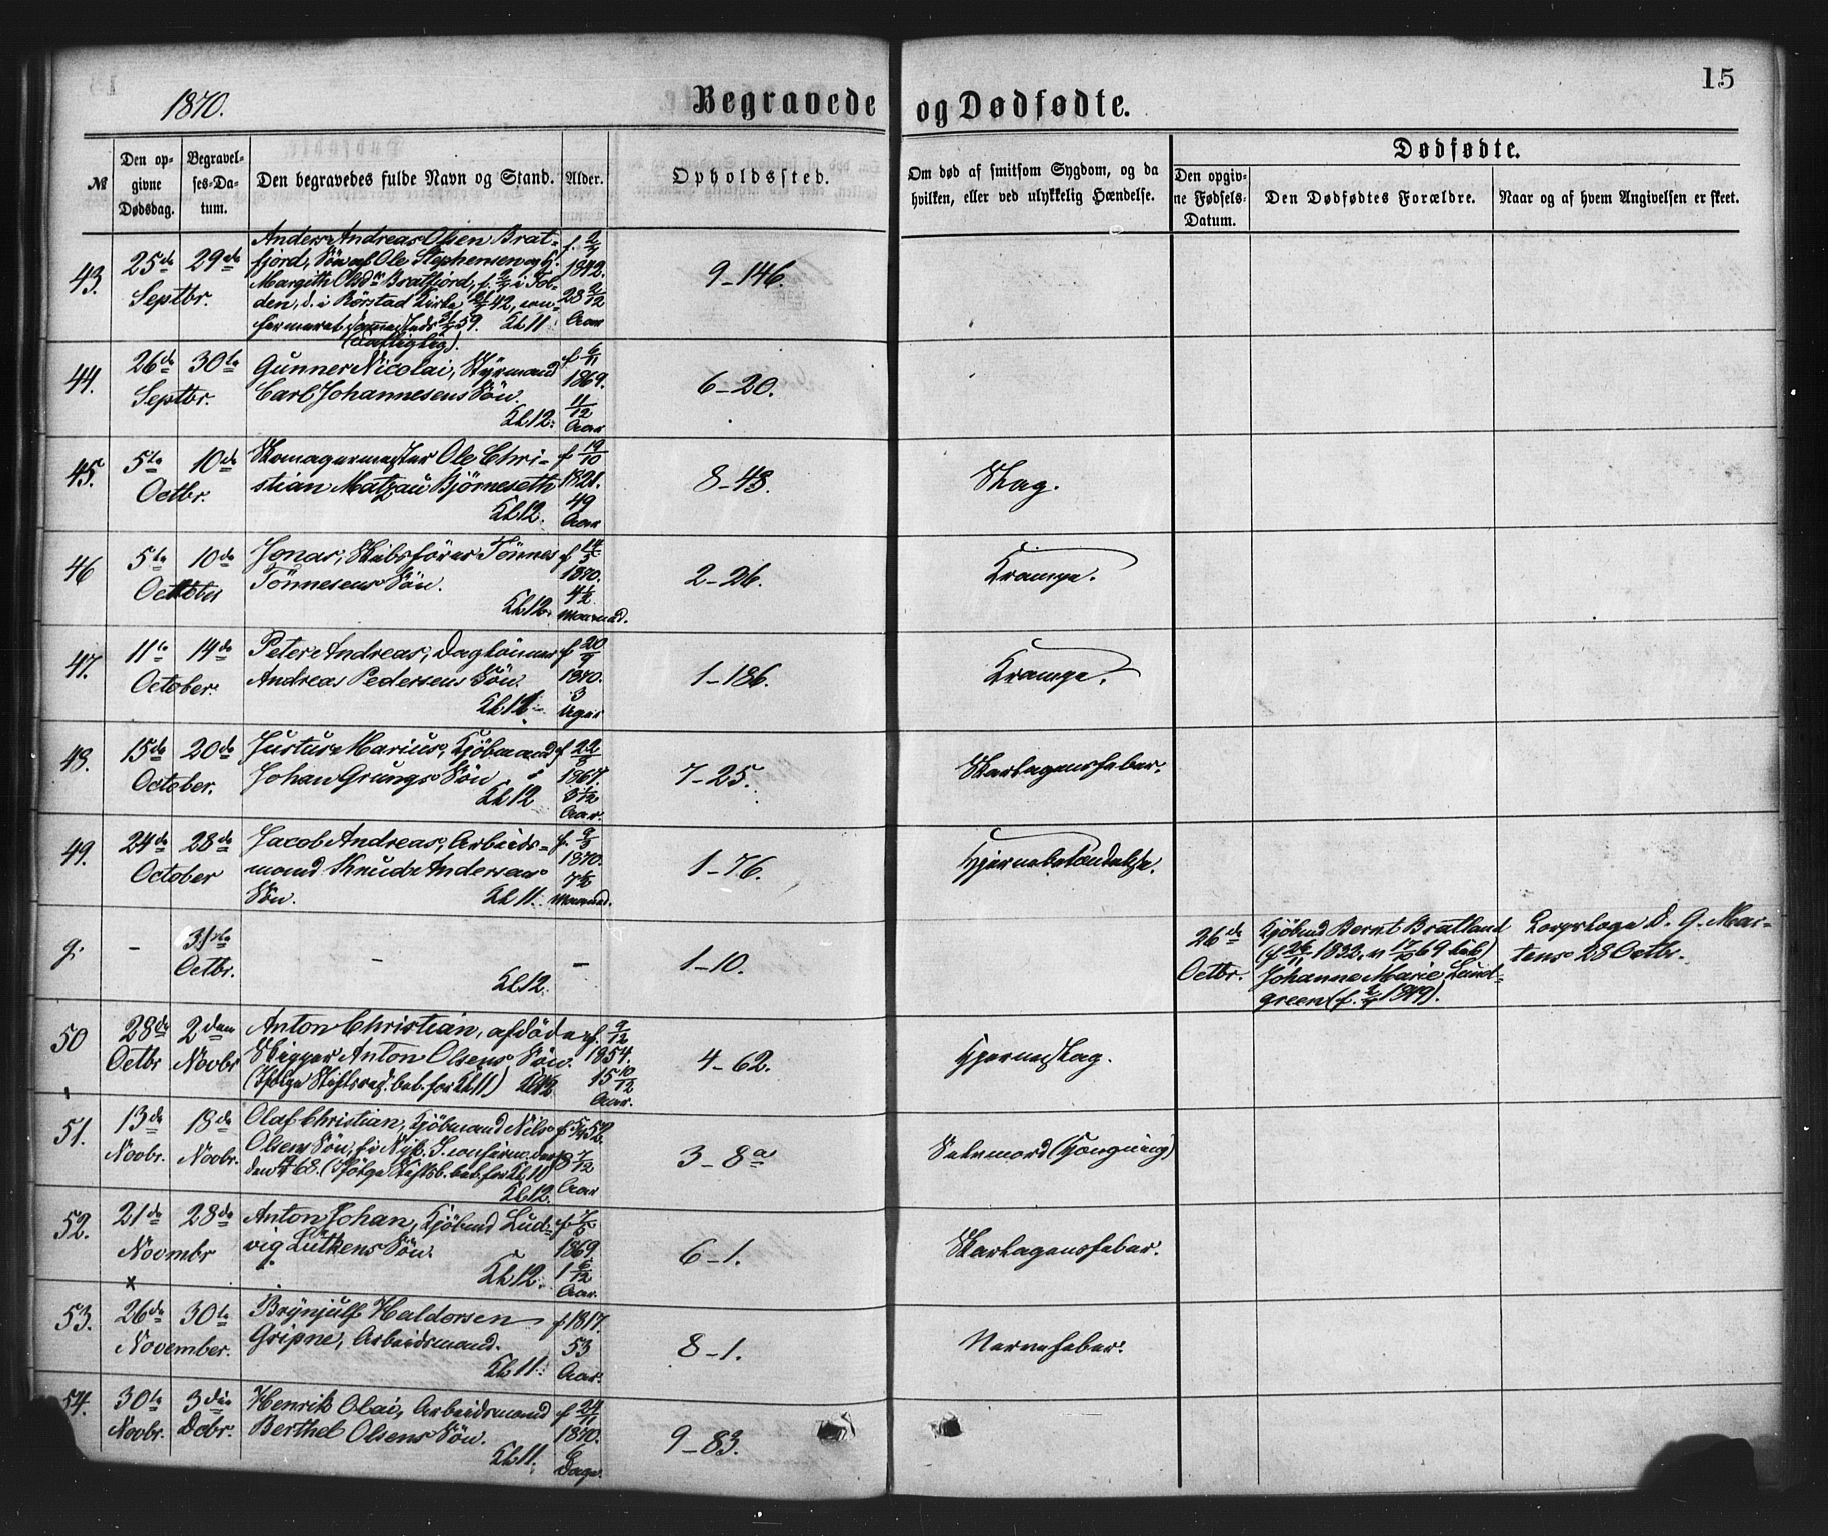 1870.
Begravede og Dødfødte.
15
№
Den opgivne Dødsdag.
Begravelses-Datum.
Den begravedes fulde Navn og Stand.
Alder.
Opholdssted.
Om død af smitsom Sygdom, og da hvilken, eller ved ulykkelig Hændelse.
Dødfødte.
Den opgivne Fødsels-Datum.
Den Dødfødtes Forældre.
Naar og af hvem Angivelsen er skeet.
43. 25de Septbr. 29de
Anders Andreas Olsen Brat-
fjord, Søn af Ole Stephensen og H.
Margith Olsdr Bratfjord, f. 2/7 i
den, d. i Kirke 42, con-
firmeret sammesteds 59. Kl. 11
f. 2/7 1842. 28 2/12 Aar
9-146.
44. 26de Septbr. 30te
Gunner Nicolai, Styrmand
Carl Johannesens Søn.
Kl. 12.
f 6/11 1869. 11/12 Aar
6-20.
45. 5te Octbr. 10de
Skomagermester Ole Chri-
stian Matzau Bjørneseth
Kl. 12.
f 19/10 1821. 49 Aar
8-48.
Slag.
46 5te October 10de
Jonas, Skibsfører Tønnes
Tønnesens Søn.
Kl. 12.
f 14/5 1870. 4½ Maaned.
2-26.
Krampe.
47. 11te October. 14de
Peter Andreas, Daglønner
Andreas Pedersens Søn.
Kl. 12.
f 20/9 1870. 3 Uger
1-186.
Krampe.
48. 15de October. 20de
Justus Marius, Kjøbmand
Johan Grungs Søn
Kl. 12
f 22/8 1867. 3 1/12 Aar.
7-25.
Skarlagensfeber.
49. 24de October 28de
Jacob Andreas, Arbeids-
mand Knud Andersens
Søn. Kl. 11.
f. 9/3 1870. 7½ Maaned.
1-76.
Hjernebetændelse.
g. - 31te Octbr.
-
Kl. 12.
-
1-10.
26de Octbr.
Kjøbmd Bernt Bratland
(f 26/11 1832, 69 beb)
Johanne Marie Lund-
green (f. 2/9 1849).
Corpslæge D. G. Mar-
tens 28 Octbr.
50 28de Octbr 2den Novbr
Anton Christian, afdøde
Skipper Anton Olsens Søn.
(Ifølge Stiftsres. bet. for Kl. 11) Kl. 12
f. 9/12 1854. 15 10/12 Aar.
4-62.
Hjerneslag.
51. 13de Novbr. 18de Novbr.
Olaf Christian, Kjøbmand Nils
Olsens Søn, f. i Nyk. S. confirmeret
den 68. (Ifølge Stiftsb. bet. for Kl. 11)
Kl. 12.
52. 18 7/12 Aar
3-8a
Selvmord (Hængning)
52. 21de Novmbr 28de
Anton Johan, Kjøbmd Lud-
vig Lütkens Søn.
Kl. 12.
f. 7/5 1869 1 6/12 Aar.
6-1.
Skarlagensfeber.
x
53. 26de November. 30te
Brynjulf Haldorsen
Gripne, Arbeidsmand.
Kl. 11.
f 1817. 53 Aar.
8-1.
Nervefeber.
54. 30te Novbr. 3die Dcbr.
Henrik Olai, Arbeidsmand
Berthel Olsens Søn.
Kl. 11.
f 24/11 1870. 6 Dage.
9-83.